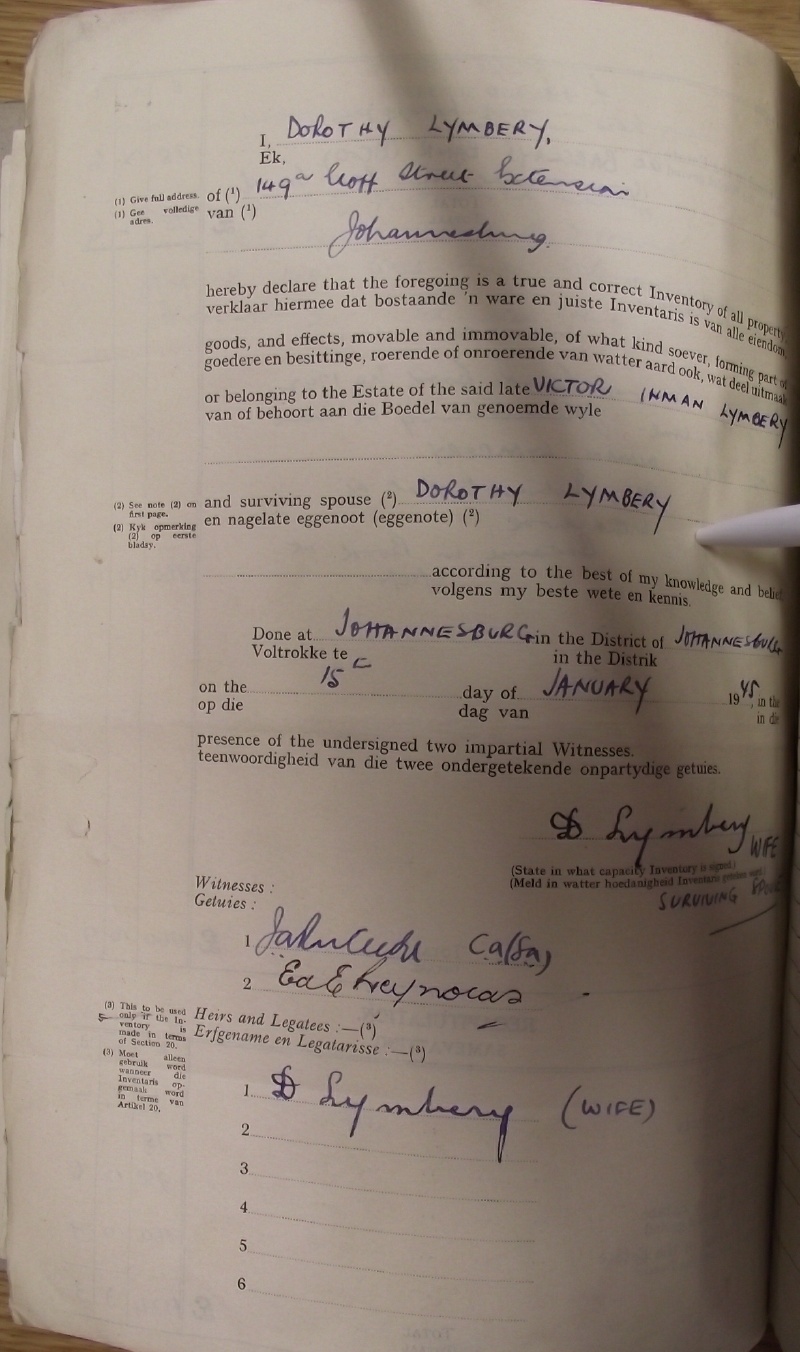 I, DOROTHY LYMBERY,
Ek,
(1) Give full address.
(1) Gee volledige adres.
of (¹) 149a Street Extension
van (¹)
Johannesburg.
hereby declare that the foregoing is a true and correct Inventory of all property,
verklaar hiermee dat bostaande 'n ware en juiste Inventaris is van alle eiendom,
goods, and effects, movable and immovable, of what kind soever, forming part of
goedere en besittinge, roerende of onroerende van watter aard ook, wat deel uitmaak
or belonging to the Estate of the said late VICTOR INMAN LYMBERY
van of behoort aan die Boedel van genoemde wyle
(2) See note (2) on
first page.
(2) Kyk opmerking
(2) op eerste
bladsy.
and surviving spouse (²) DOROTHY LYMBERY
en nagelate eggenoot (eggenote) (²)
according to the best of my knowledge and belief
volgens my beste wete en kennis.
Done at JOHANNESBURG in the District of JOHANNESBURG
Voltrokke te in the Distrik
on the 15 day of JANUARY 1945, in the
op die dag van in die
presence of the undersigned two impartial Witnesses.
teenwoordigheid van die twee ondergetekende onpartydige getuies.
D Lymbery WIFE
(State in what capacity Inventory is signed.)
(Meld in watter hoedanigheid Inventaris
SURVIVING
Witnesses :
Getuies :
1 CA(SA)
2
(3) This to be used
only if the In-
ventory is
made in terms
of Section 20.
(3) Moet alleen
gebruik word
wanneer die
Inventaris op-
gemaak word
in terme van
Artikel 20,
Heirs and Legatees :—(³)
Erfgename en Legatarisse :—(³)
1 D Lymbery (WIFE)
2
3
4
5
6